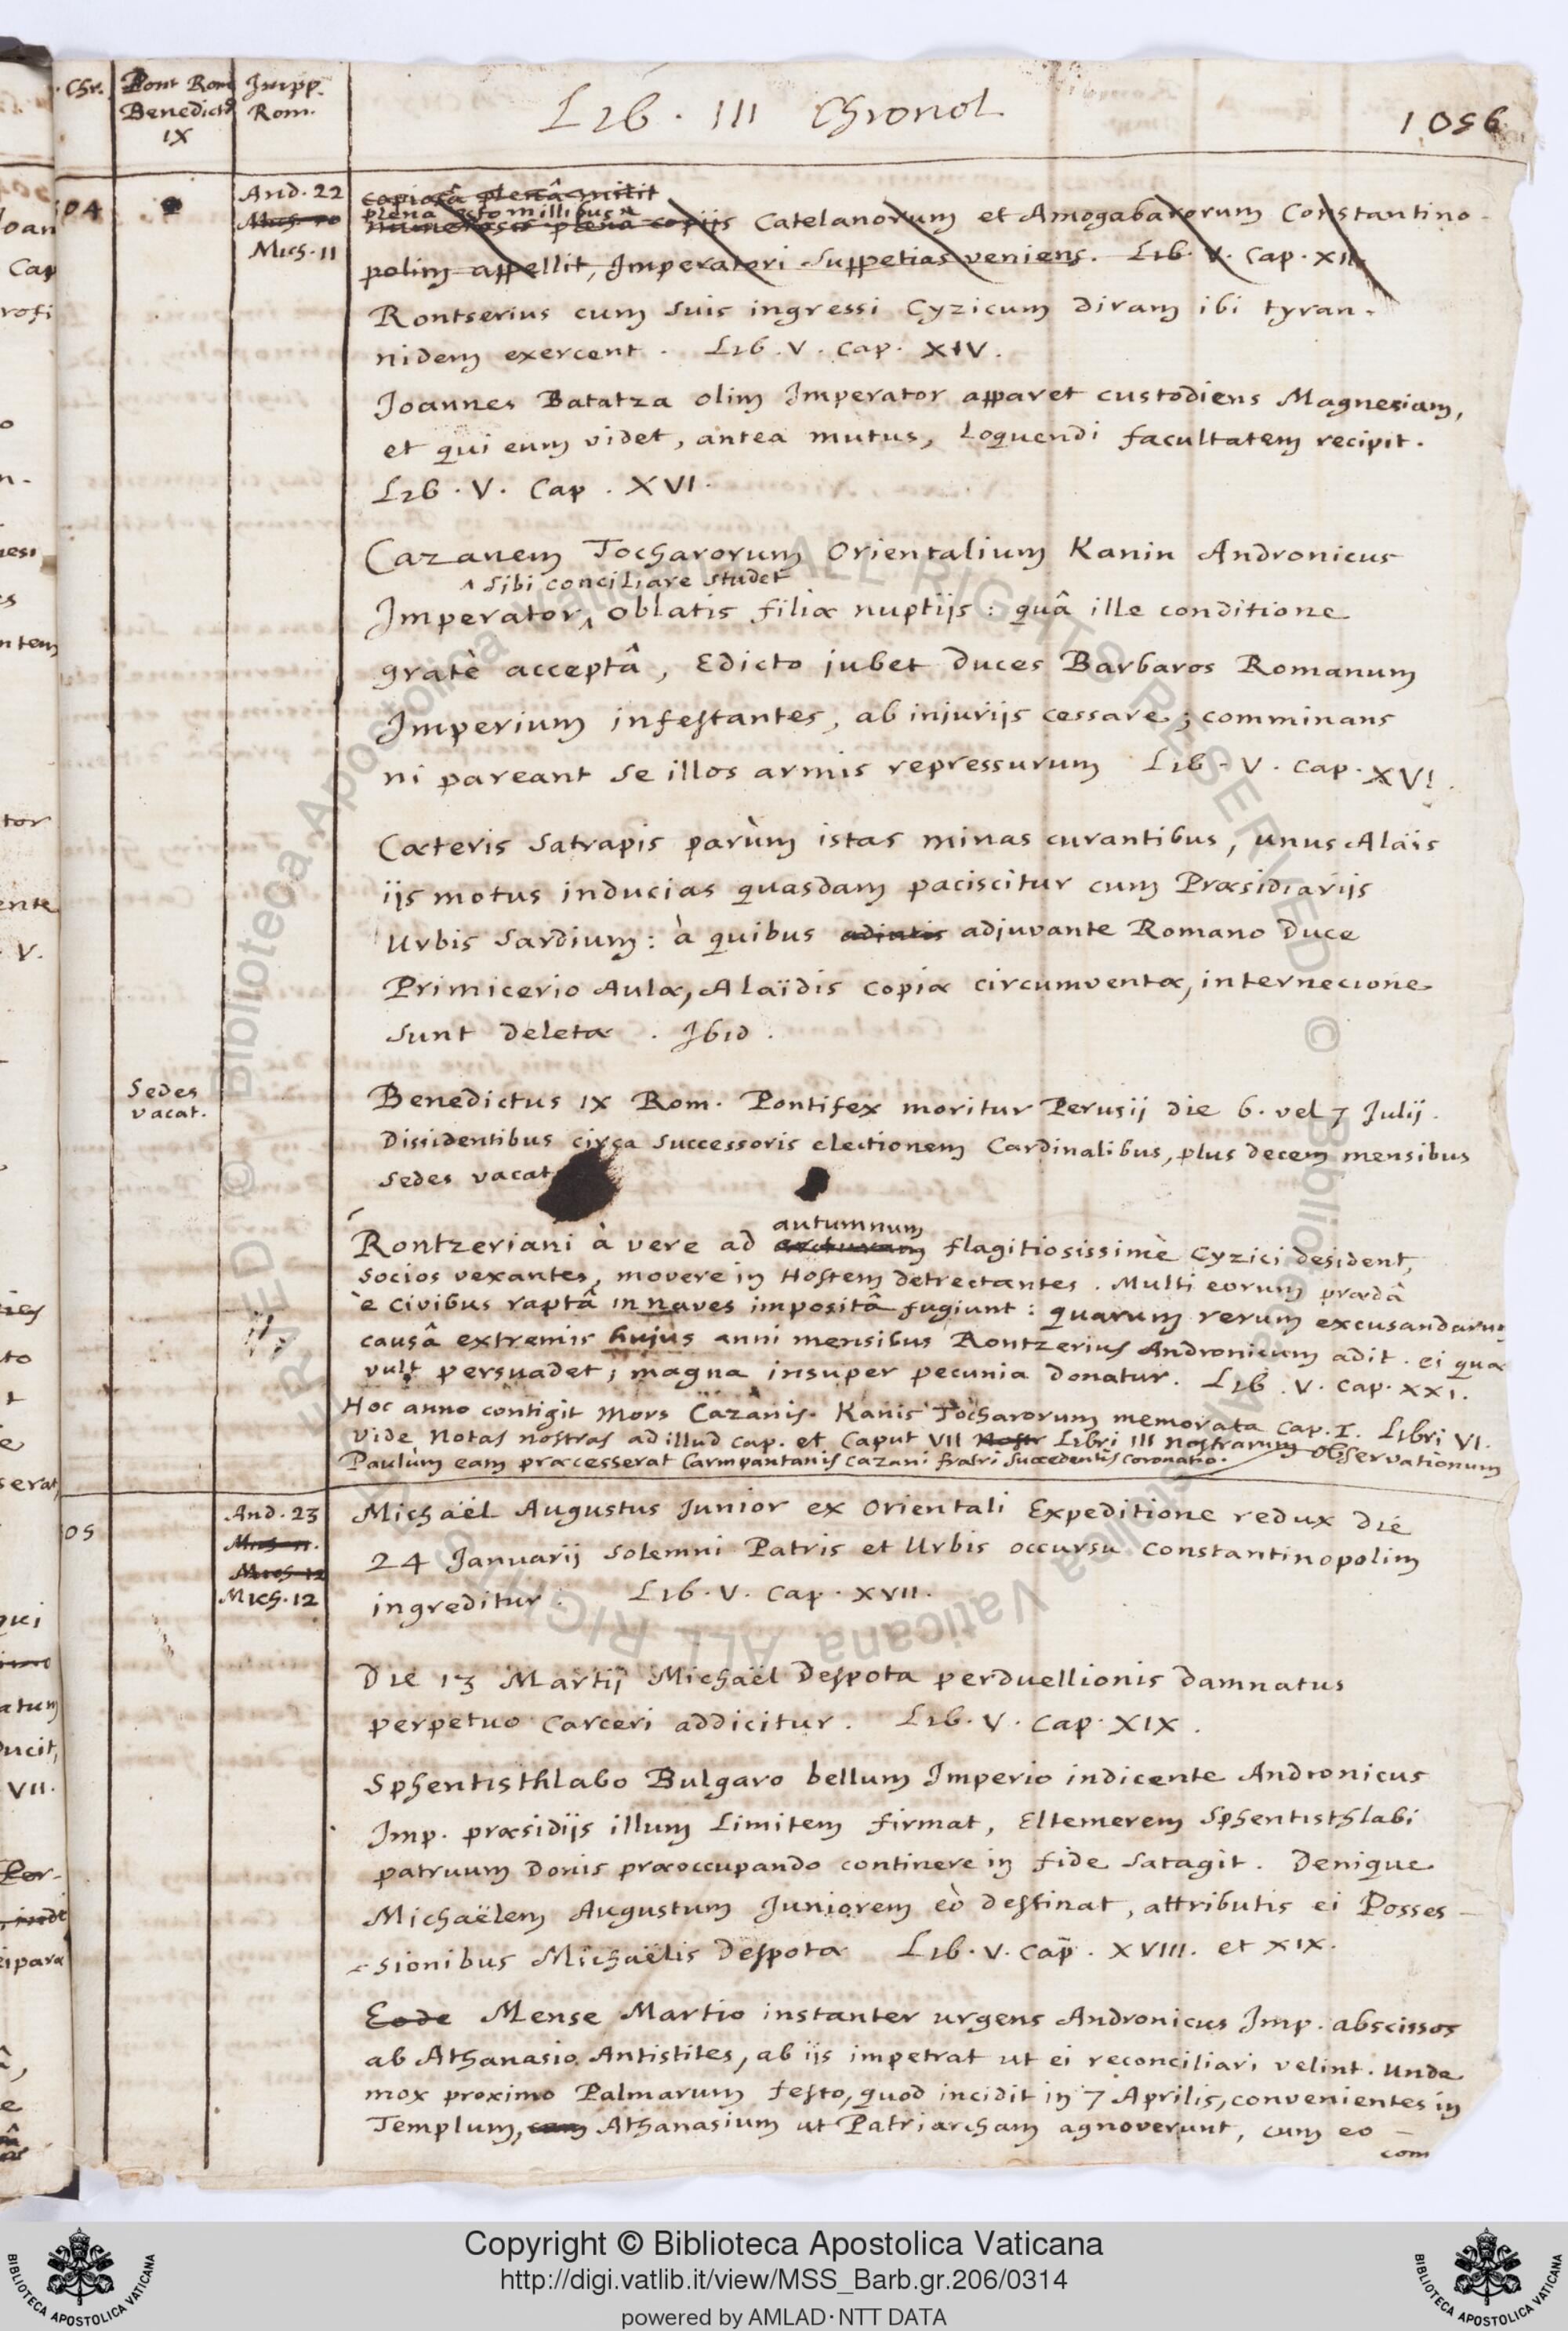 Chr.
Pont Rom
Benedict9
IX
Impp.
Rom.
Lib. III Chronol
1056
04
And. 22
Mich. 11
copiosâ plenâ mittit
plena octo millibus
numerosis plena copijs Catelanorum et Amogabarorum Constantino-
polim appellit, Imperatori suppetias veniens. Lib. V. Cap. XII.
Rontserius cum suis ingressi Cyzicum diram ibi tyran-
nidem exercent. Lib. V. Cap. XIV.
Joannes Batatza olim Imperator apparet custodiens Magnesiam,
et qui eum videt, antea mutus, loquendi facultatem recipit.
Lib. V. Cap. XVI.
Cazanem Tocharorum Orientalium Kanin Andronicus
^ sibi conciliare studet
Imperator^ oblatis filiæ nuptijs: quâ ille conditione
gratè acceptâ, Edicto jubet Duces Barbaros Romanum
Imperium infestantes, ab injurijs cessare; comminans
ni pareant se illos armis repressurum Lib. V. Cap. XVI.
Cæteris Satrapis parùm istas minas curantibus, unus Alaïs
ijs motus inducias quasdam paciscitur cum Præsidiarijs
Urbis Sardium: à quibus adjuvante Romano Duce
Primicerio Aulæ, Alaïdis copiæ circumventæ, internecione
sunt deletæ. Ibid.
Sedes
vacat.
Benedictus IX Rom. Pontifex moritur Perusij die 6. vel 7 Julij.
Dissidentibus circa successoris electionem Cardinalibus, plus decem mensibus
Sedes vacat
autumnum
Rontzeriani à vere ad flagitiosissimè Cyzici desident,
socios vexantes, movere in Hostem detrectantes. Multi eorum prædâ
è civibus raptâ in naves impositâ fugiunt: quarum rerum excusandarum
causâ extremis hujus anni mensibus Rontzerius Andronicum adit. ei quæ
vult persuadet; magna insuper pecunia donatur. Lib. V. Cap. XXI.
Hoc anno contigit Mors Cazanis Kanis Tocharorum memorata Cap. I. Libri VI.
vide Notas nostras ad illud cap. et Caput VII Nostr Libri III nostrarum Observationum
Paulùm eam præcesserat Carmpantanis Cazani fratri succedentis coronatio.
05
And. 23
Mich. 11.
Mich. 12
Mich. 12
Michaël Augustus Junior ex Orientali Expeditione redux die
24 Januarij solemni Patris et Urbis occursu Constantinopolim
ingreditur. Lib. V. Cap. XVII.
Die 13 Martij Michaël Despota perduellionis damnatus
perpetuo carceri addicitur. Lib. V. Cap. XIX.
Sphentisthlabo Bulgaro bellum Imperio indicente Andronicus
Imp. præsidijs illum Limitem firmat, Eltemerem Sphentisthlabi
patruum donis præoccupando continere in fide satagit. Denique
Michaëlem Augustum Juniorem eò destinat, attributis ei Posses-
-sionibus Michaëlis Despotæ Lib. V. Cap. XVIII. et XIX.
Eode Mense Martio instanter urgens Andronicus Imp. abscissos
ab Athanasio Antistites, ab ijs impetrat ut ei reconciliari velint. Unde
mox proximo Palmarum festo, quod incidit in 7 Aprilis, convenientes in
Templum, cum Athanasium ut Patriarcham agnoverunt, cum eo
com
Copyright © Biblioteca Apostolica Vaticana
http://digi.vatlib.it/view/MSS_Barb.gr.206/0314
powered by AMLAD·NTT DATA